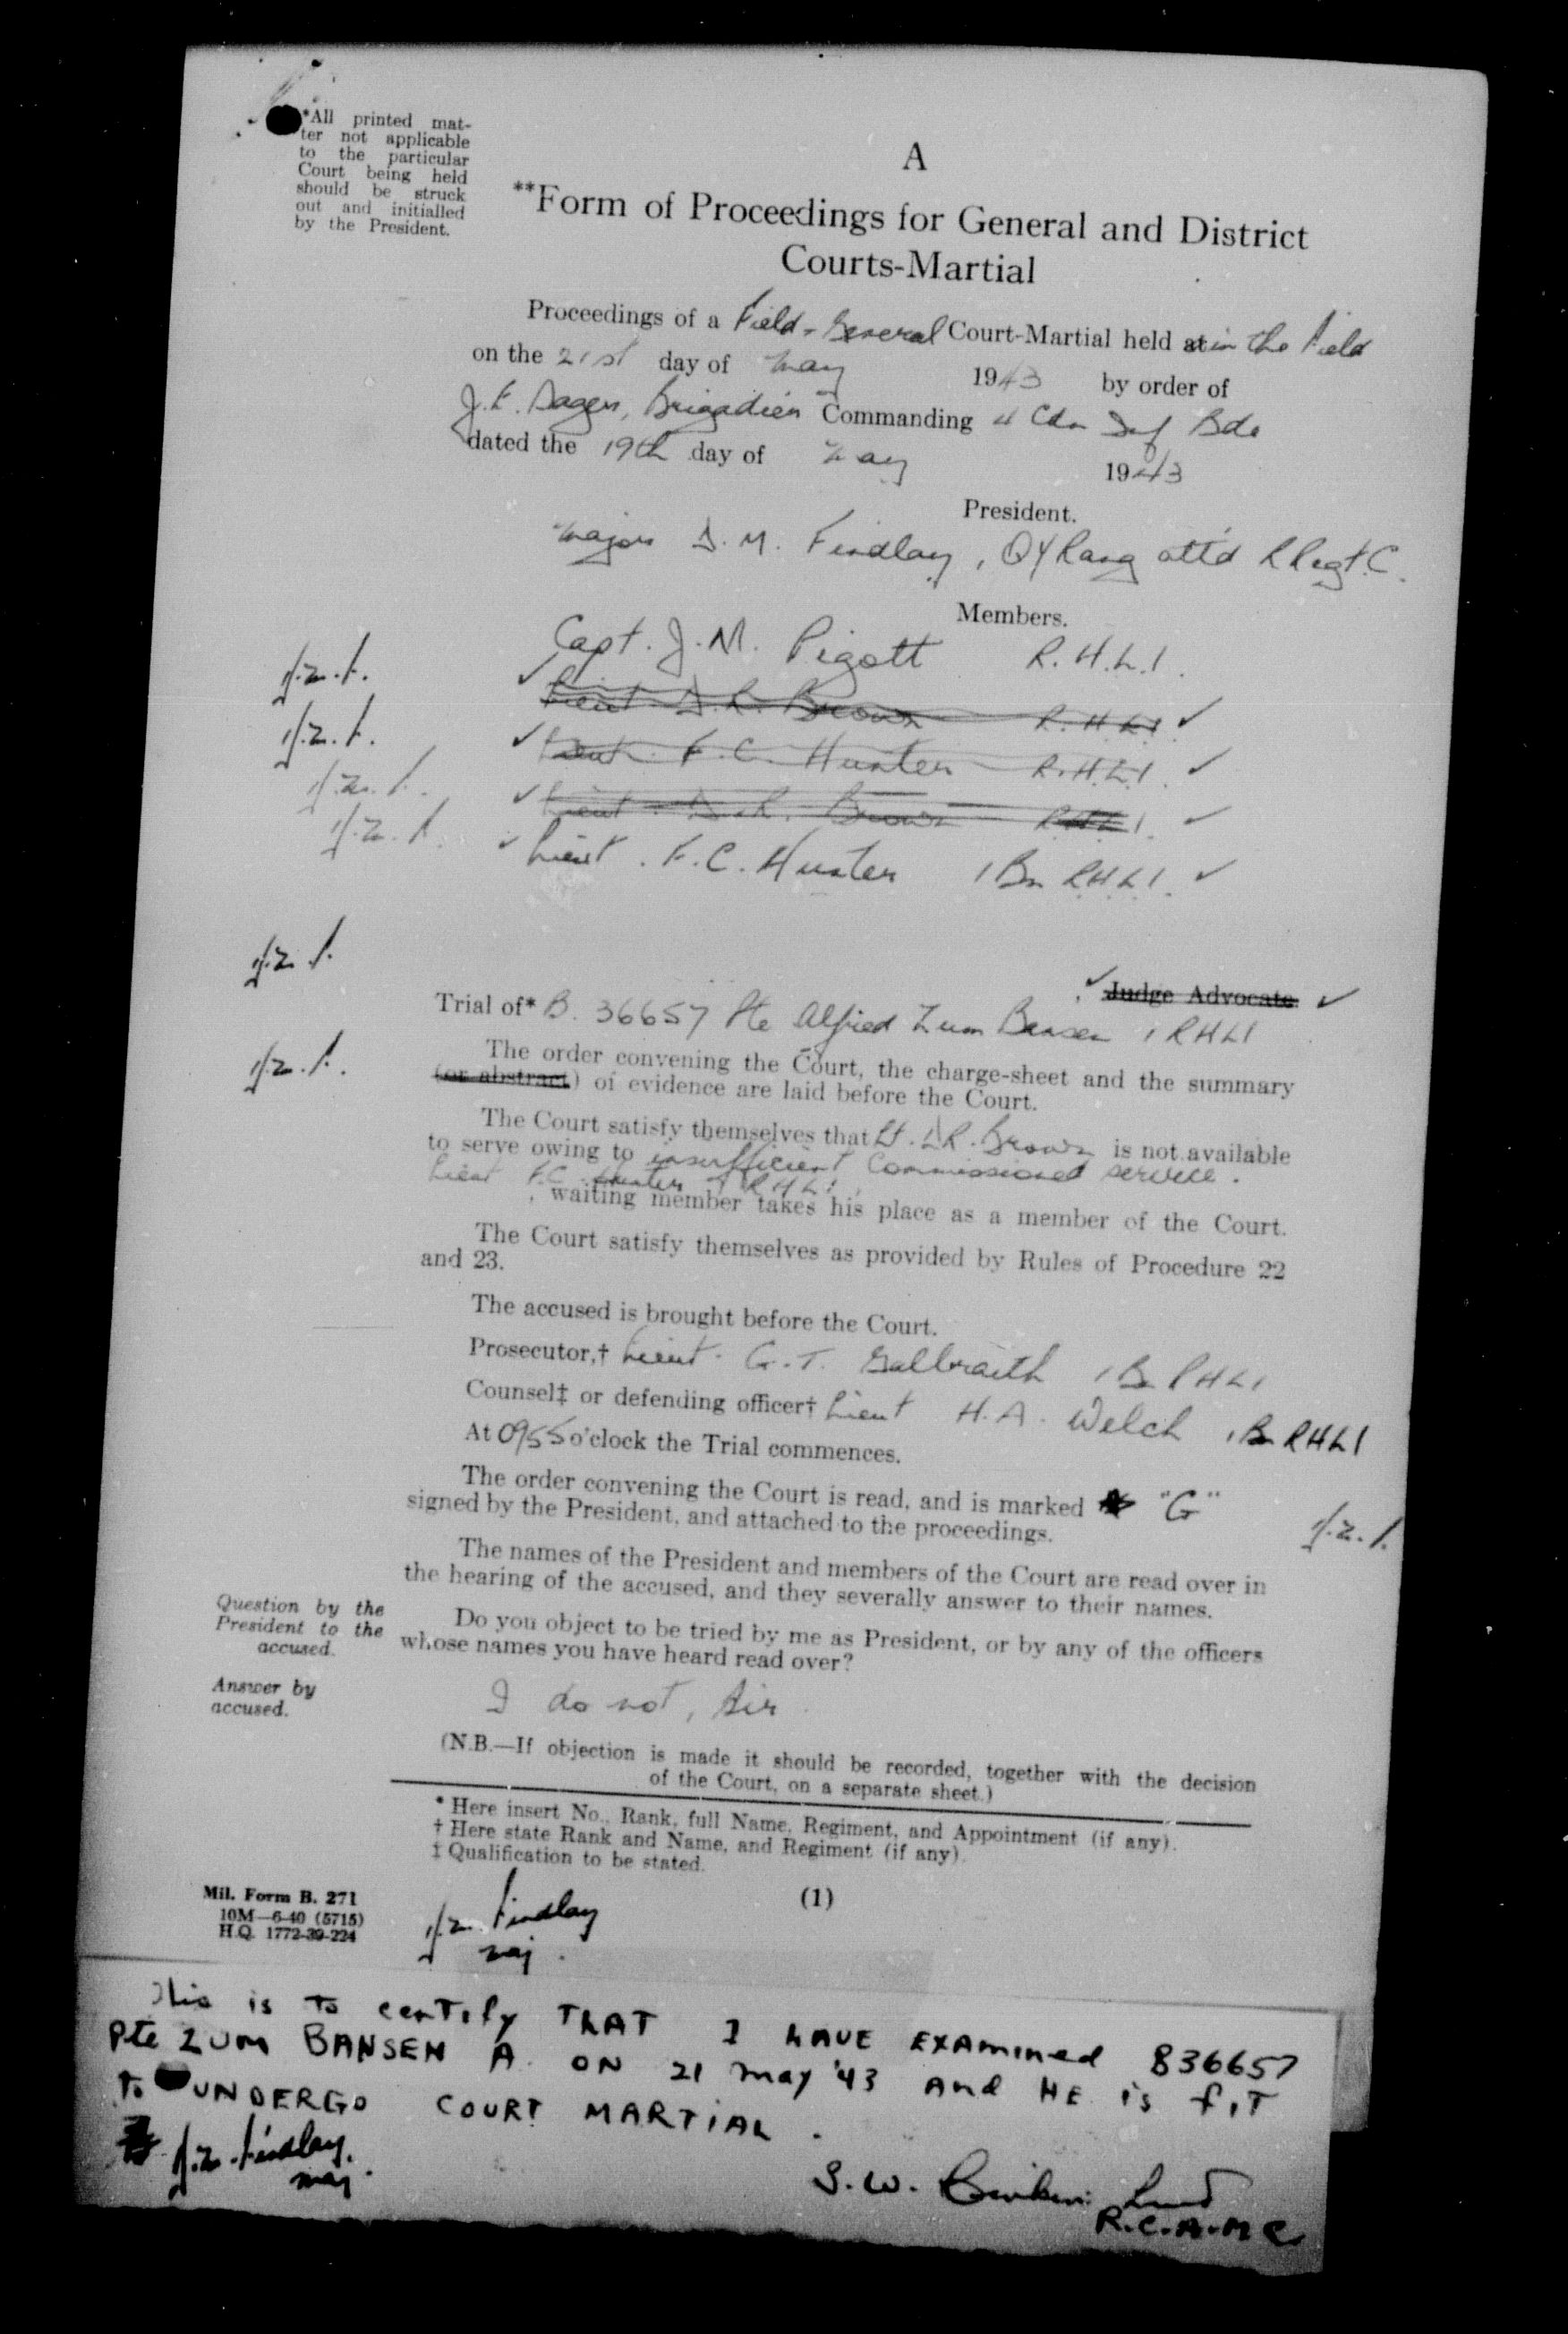 *All printed mat-
ter not applicable
to the particular
Court being held
should be struck
out and initialled
by the President.
A
**Form of Proceedings for General and District
Courts-Martial
Proceedings of a Field-General Court-Martial held at in the Field
on the 21st day of May 1943 by order of
J.E. Sager, Brigadier Commanding 4 Cdn Inf Bde
dated the 19th day of May 1943
President.
Major J.M. Findlay, QY Rang att'd R Regt. C.
Members.
Capt. J.M. Pigott R.H.L.I.
J.M.F. ✓ Lieut D.R. Brown R.H.L.I ✓
J.M.F. ✓ Lieut. F.C. Hunter R.H.L.I. ✓
J.M.F. ✓ Lieut. D.R. Brown R.H.L.I. ✓
J.M.F. ✓ Lieut. F.C. Hunter 1 Bn R.H.L.I. ✓
J.M.F. ✓ Judge Advocate ✓
Trial of* B. 36657 Pte Alfred Zum Bansen, RHLI
The order convening the Court, the charge-sheet and the summary
J.M.F. (or abstract) of evidence are laid before the Court.
The Court satisfy themselves that Lt. D.R. Brown is not available
to serve owing to insufficient Commissioned service.
Lieut F.C. Hunter RHLI
, waiting member takes his place as a member of the Court.
The Court satisfy themselves as provided by Rules of Procedure 22
and 23.
The accused is brought before the Court.
Prosecutor,† Lieut. G.T. Galbraith 1 Bn RHLI
Counsel‡ or defending officer† Lieut H.A. Welch 1 Bn RHLI
At 0955 o'clock the Trial commences.
The order convening the Court is read, and is marked "G"
signed by the President, and attached to the proceedings. J.M.F.
The names of the President and members of the Court are read over in
the hearing of the accused, and they severally answer to their names.
Question by the
President to the
accused.
Do you object to be tried by me as President, or by any of the officers
whose names you have heard read over?
Answer by
accused.
I do not, Sir
(N.B.—If objection is made it should be recorded, together with the decision
of the Court, on a separate sheet.)
* Here insert No., Rank, full Name, Regiment, and Appointment (if any).
† Here state Rank and Name, and Regiment (if any).
‡ Qualification to be stated.
Mil. Form B. 271
10M—6-40 (5715)
H.Q. 1772-39-224
(1)
J.M. Findlay
Maj.
This is to certify THAT I HAVE EXAMINED B36657
Pte ZUM BANSEN A. ON 21 May '43 and HE is fiT
To UNDERGO COURT MARTIAL.
J.M. Findlay.
Maj.
S.W.
R.C.A.M.C